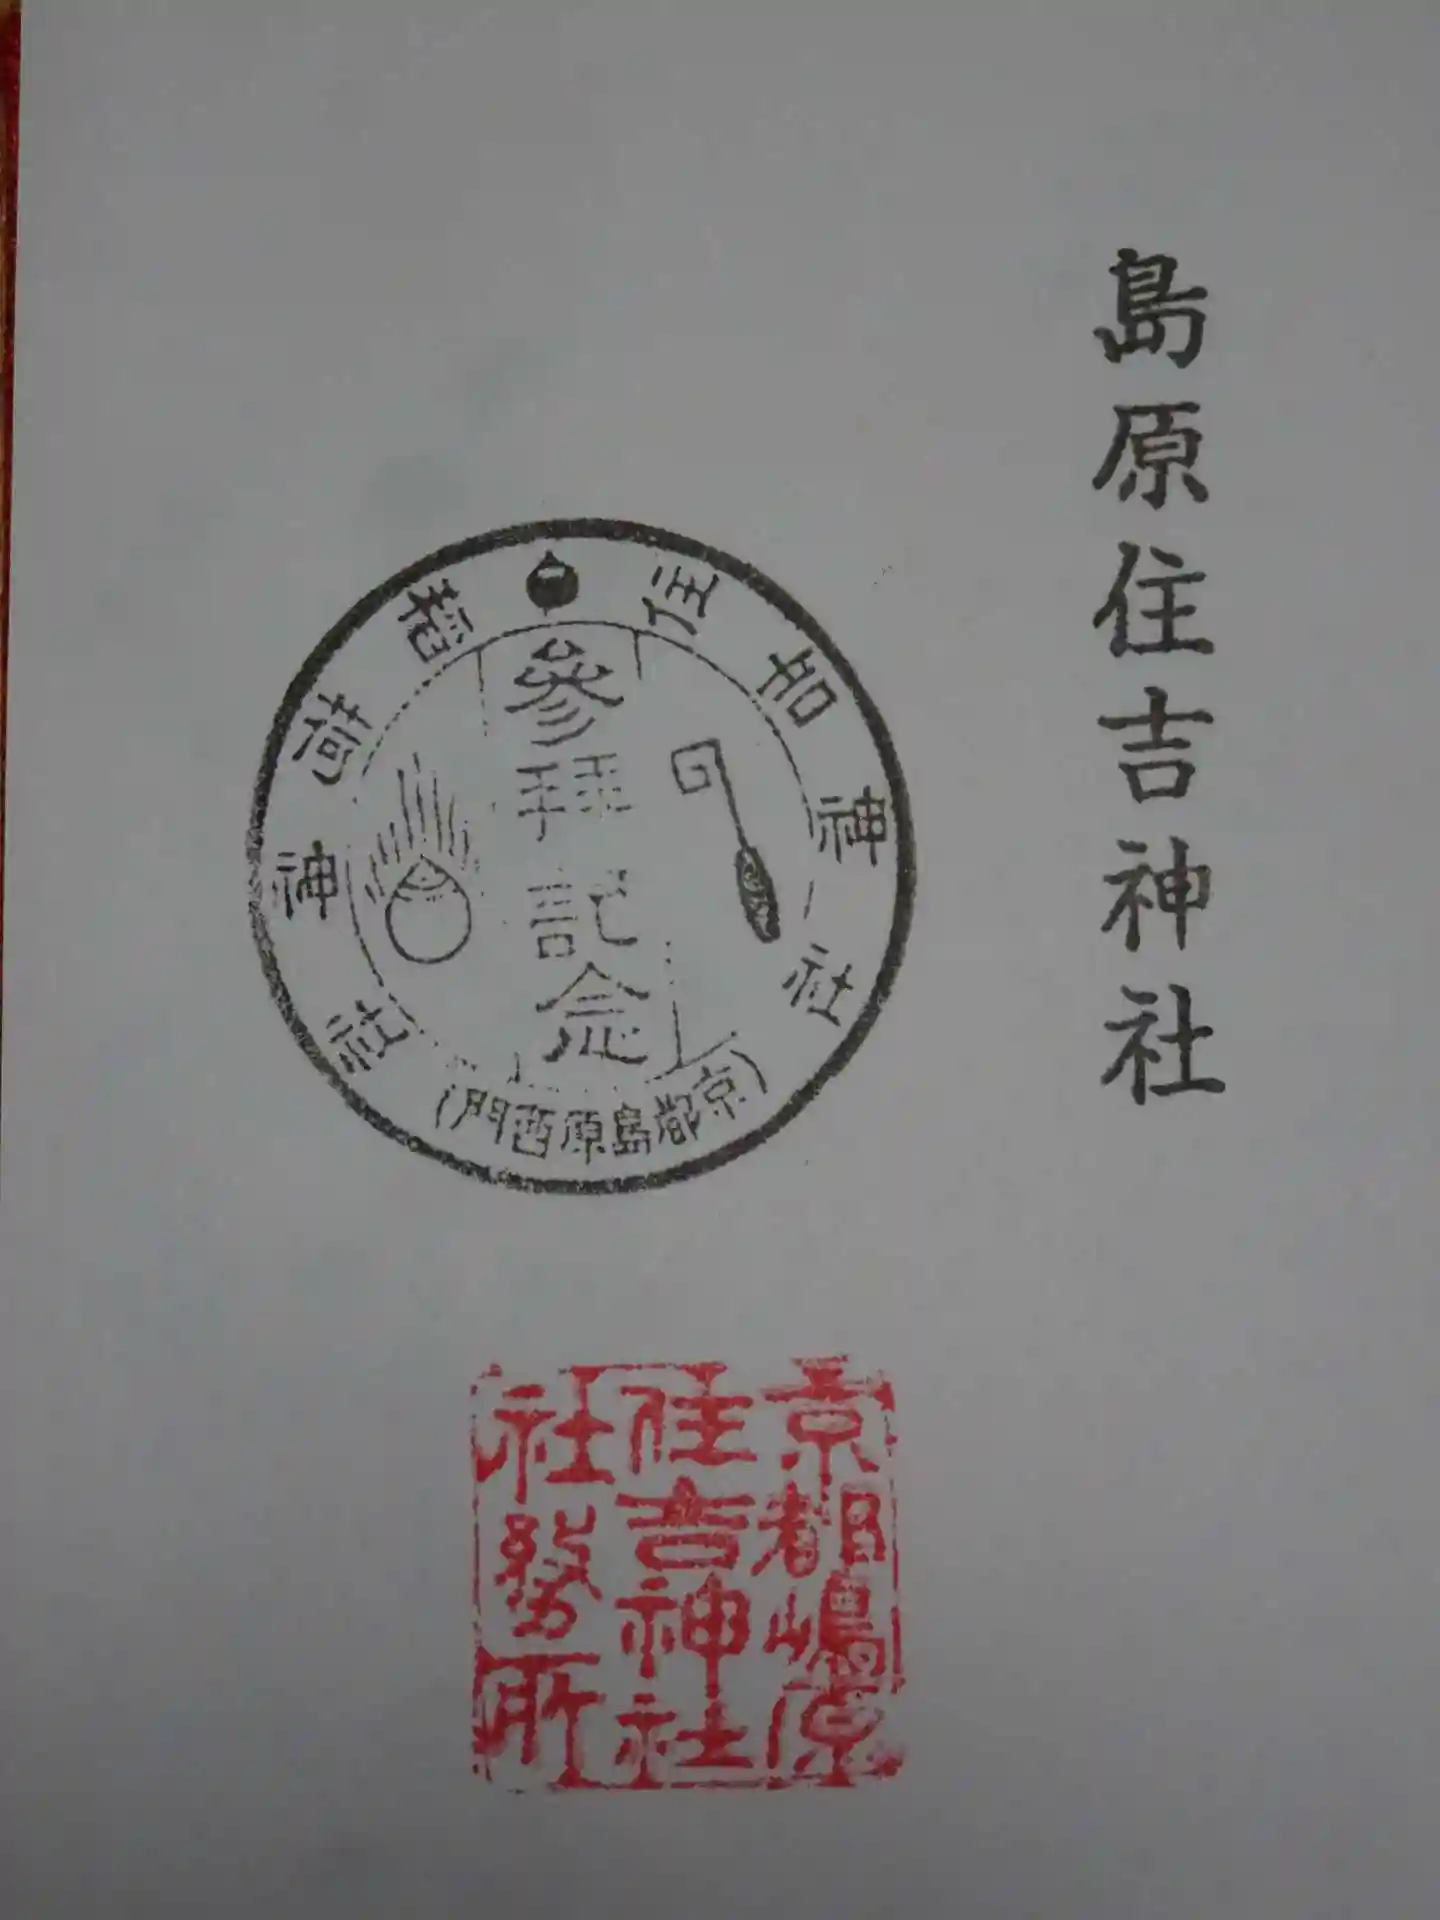 島原住吉神社
住吉神社
稲荷神社
參拜記念
(京都島原西門)
京都嶋原
住吉神社
社務所